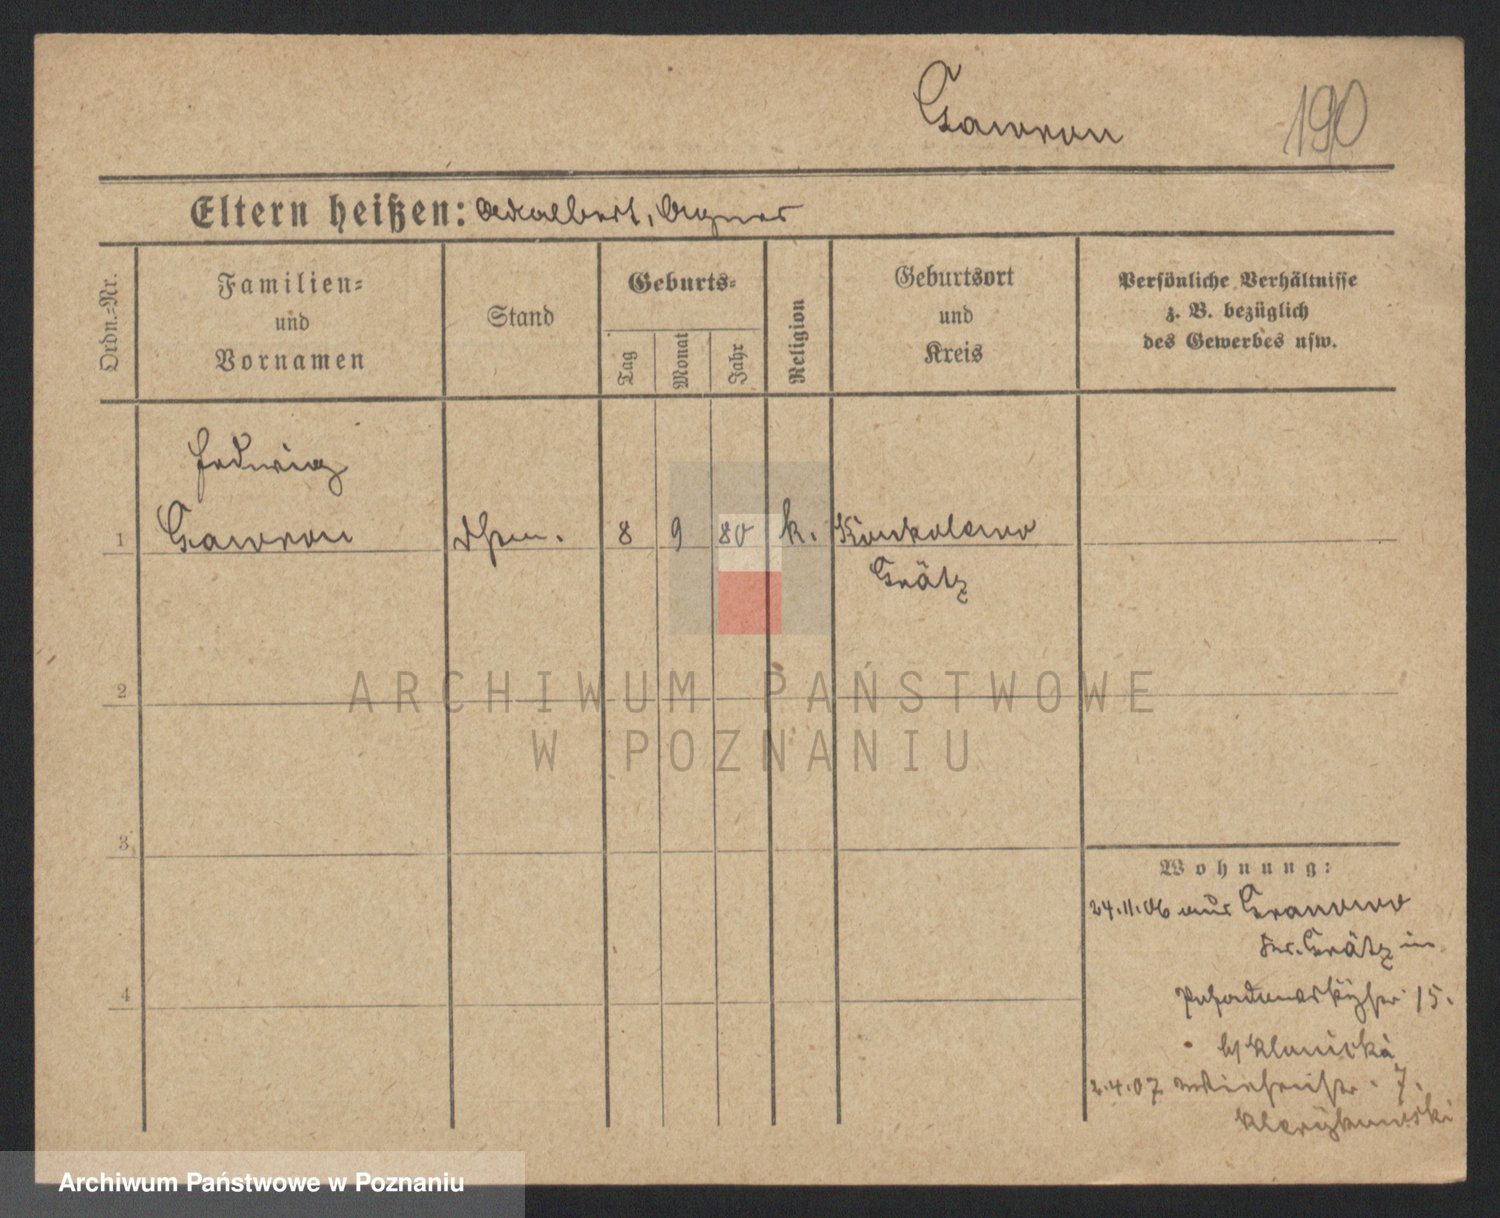 Gawron
190
Eltern heißen: Adalbert, Agnes
Ordn.-Nr.
Familien-
und
Vornamen
Stand
Geburts-
Tag
Monat
Jahr
Religion
Geburtsort
und
Kreis
Persönliche Verhältnisse
z. B. bezüglich
des Gewerbes usw.
Hedwig
1 Gawron 8 9 80 k. Kąkolewo
Grätz
2
ARCHIWUM PAŃSTWOWE
W POZNANIU
3
Wohnung:
24.11.06 aus Granowo
Kr. Grätz in
15.
4
b/
2.4.07 7.
Archiwum Państwowe w Poznaniu